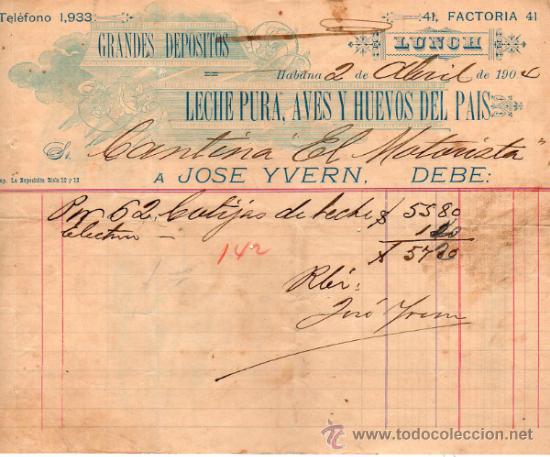 Teléfono 1,933
41, FACTORIA 41
GRANDES DEPOSITOS
LUNCH
Habana 2 de Abril de 1904
LECHE PURA, AVES Y HUEVOS DEL PAIS.
Sr. Cantina "El Motorista"
A JOSE YVERN, DEBE:
Por 62 botijas de leche $ 55 80
1 20
142
$ 57 00
Rbi:
José Yvern
www.todocoleccion.net